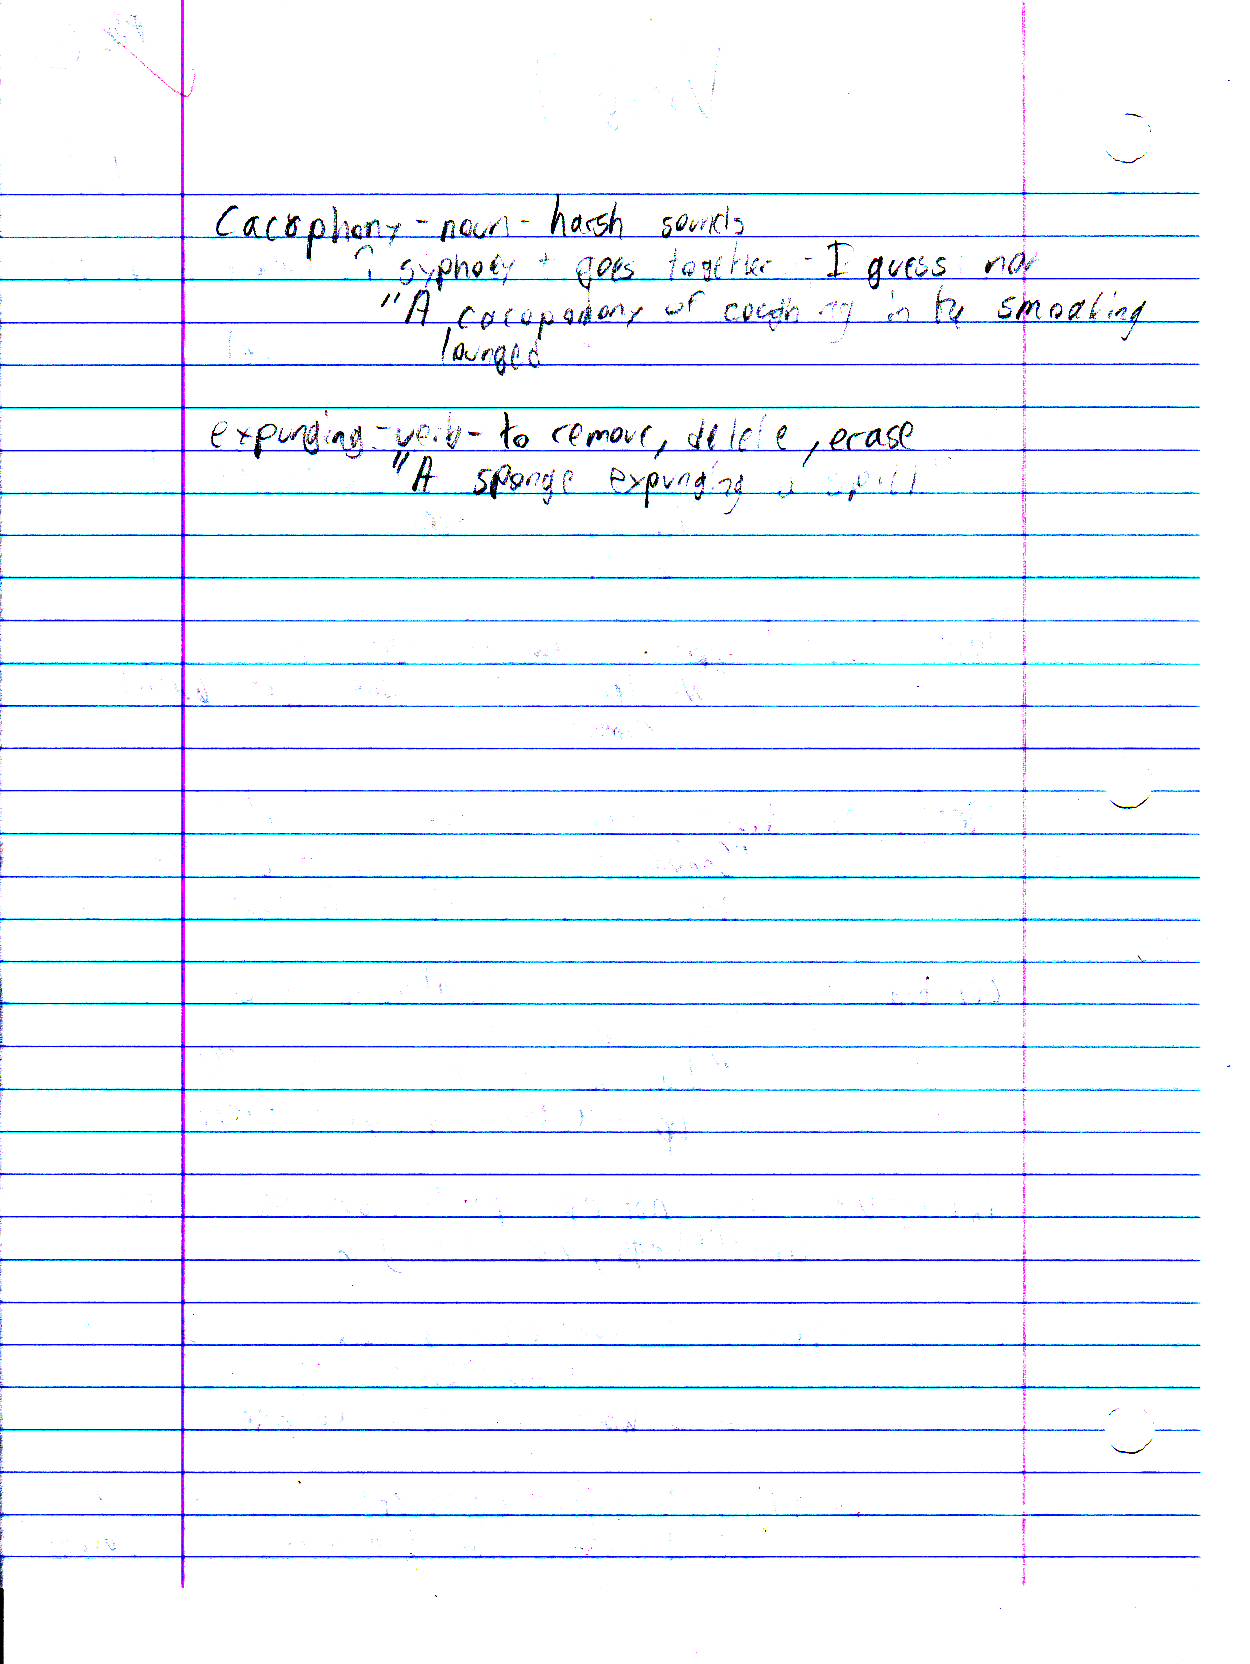 Cacophony - noun - harsh sounds
syphony + goes together - I guess not
"A cacopohony of coughing in the smoaking
lounged
expunging - verb - to remove, delete, erase
"A sponge expunging a spill